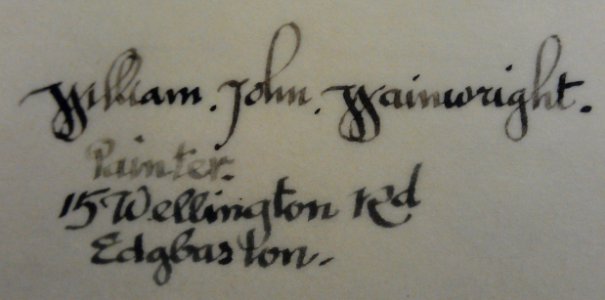 William. John. Wainwright.
Painter.
15 Wellington Rd
Edgbaston.